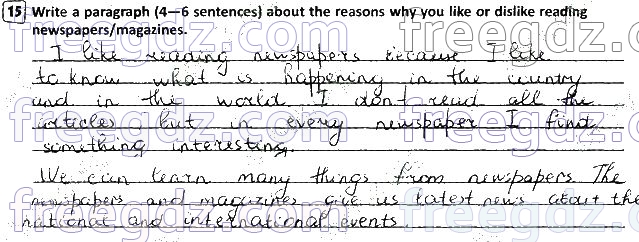 15 Write a paragraph (4—6 sentences) about the reasons why you like or dislike reading
newspapers/magazines.
I like reading newspapers because I like
to know what is happening in the country
and in the world. I don't read all the
articles but in every newspaper I find
something interesting.
We can learn many things from newspapers. The
newspapers and magazines give us latest news about the
national and international events.
freegdz.com